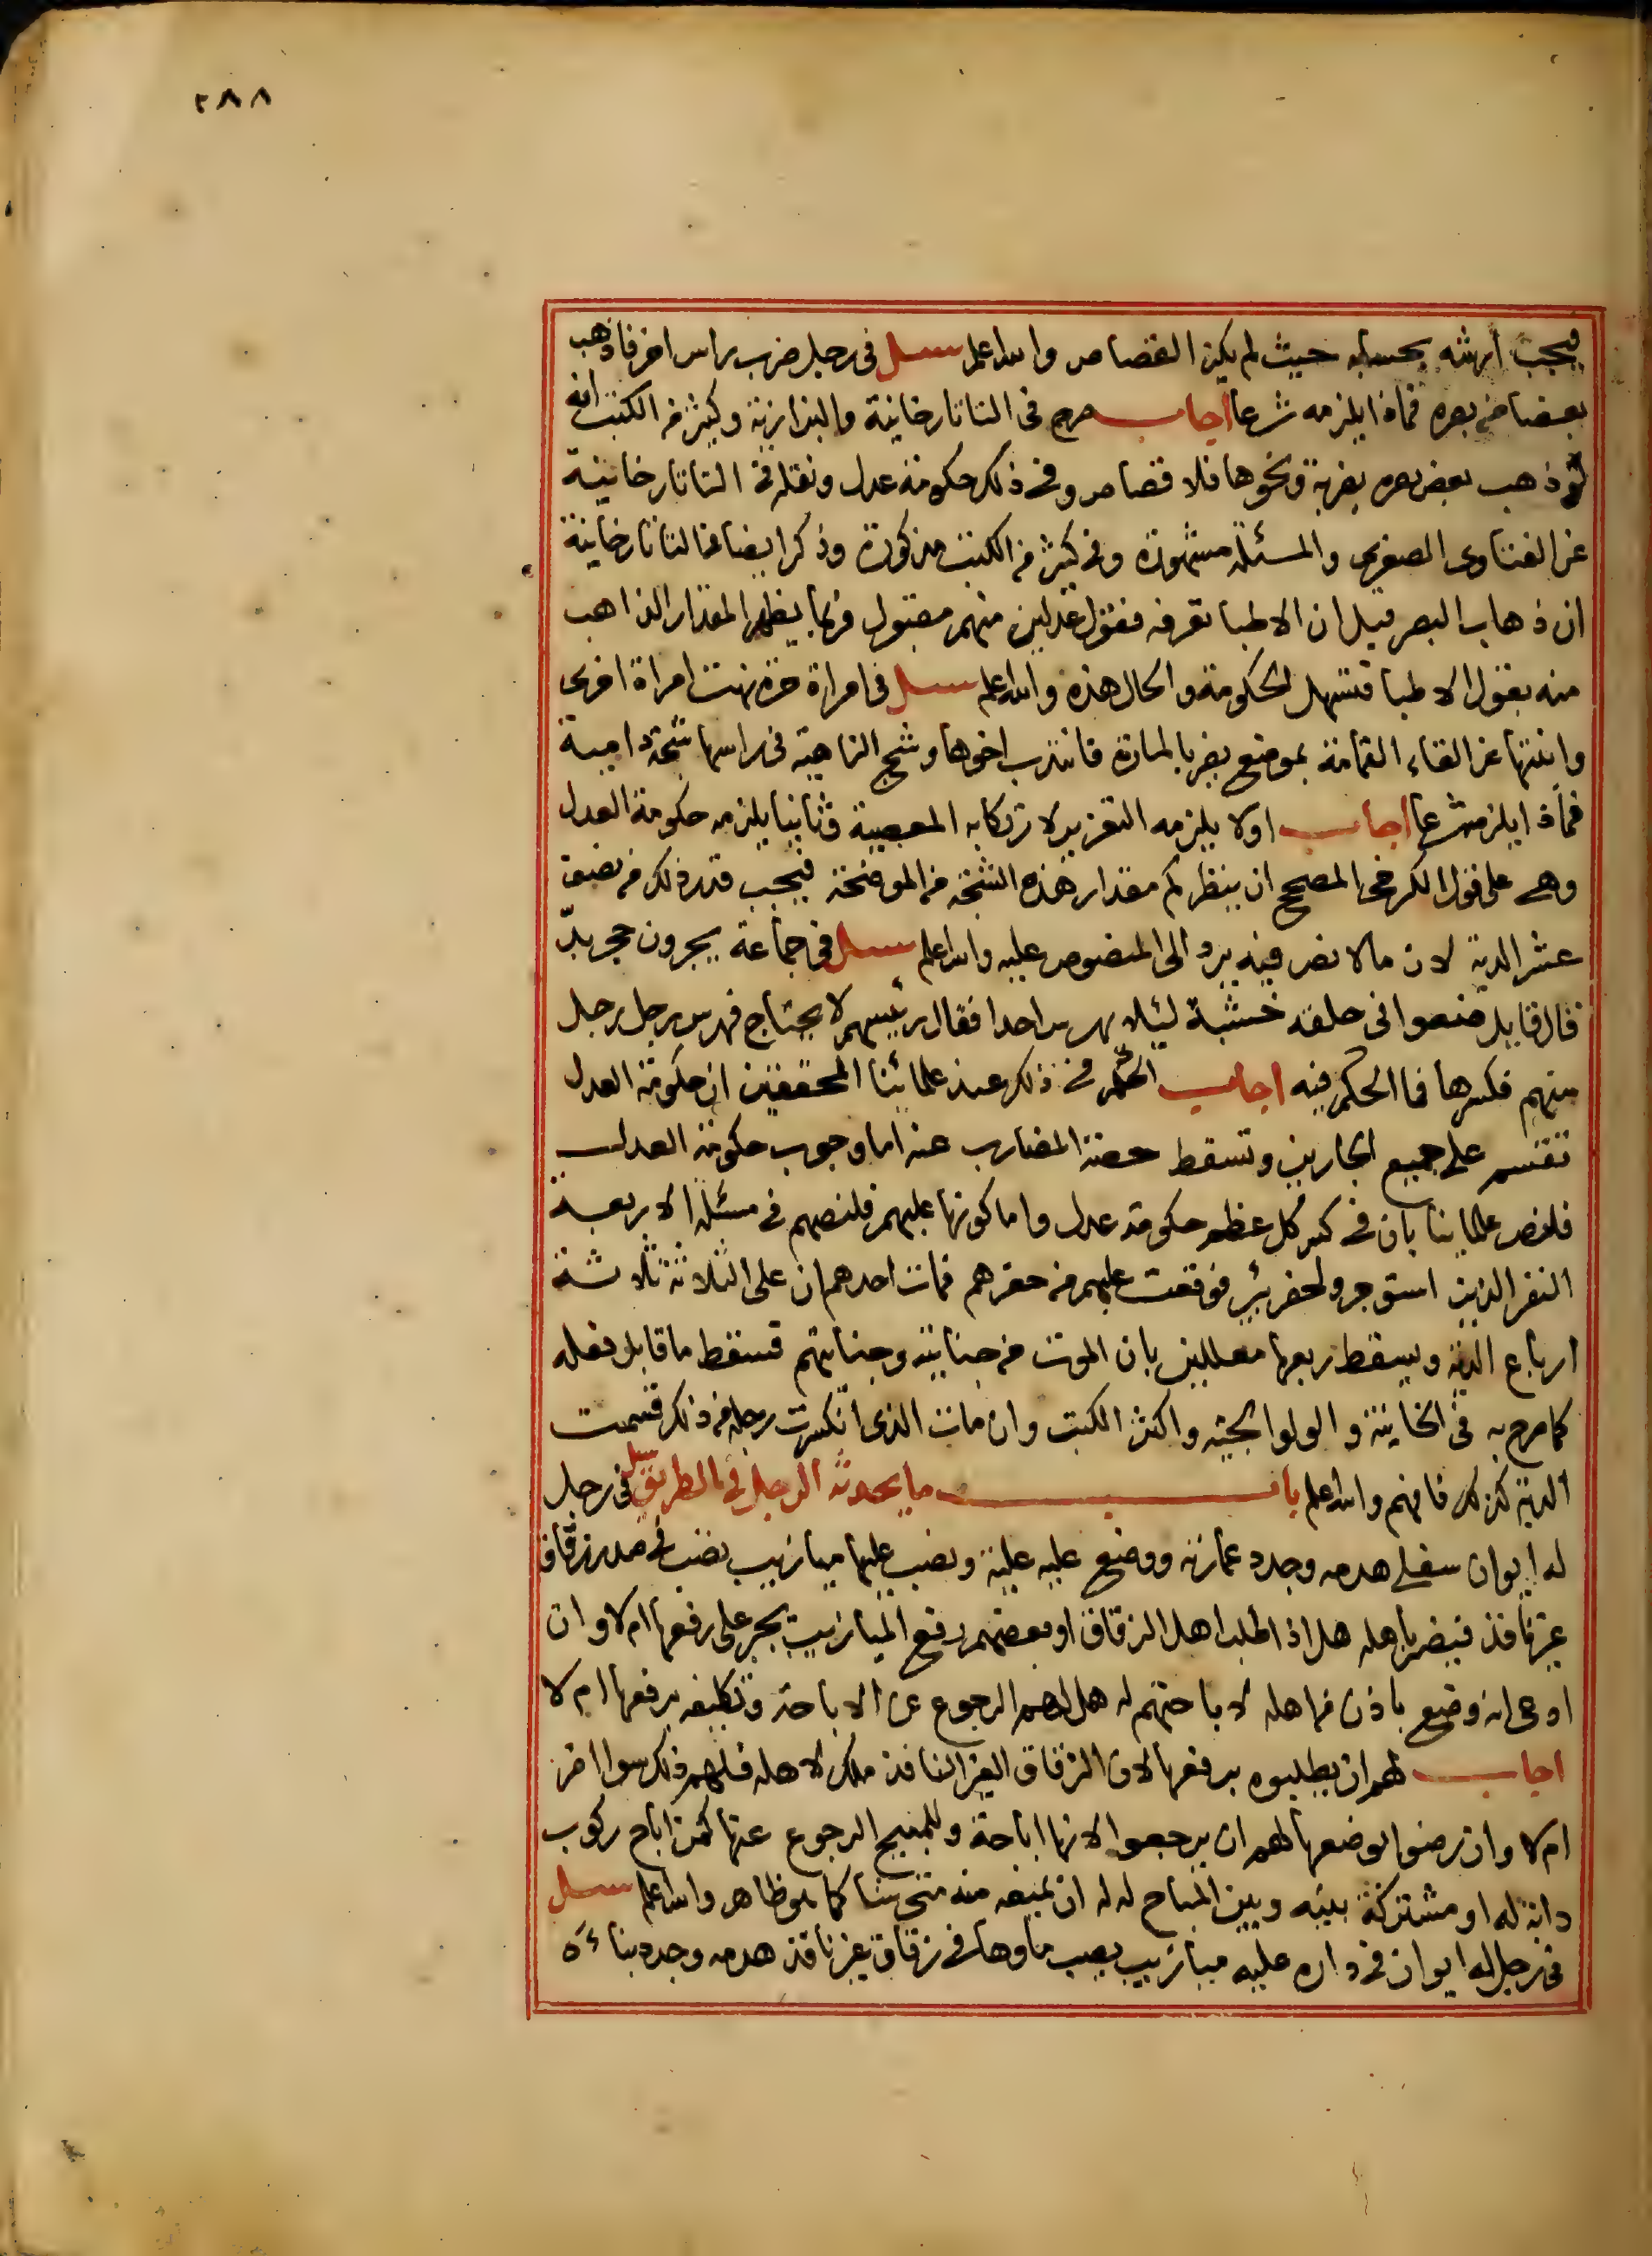 ٢٨٨
فيجب ارشه بحسابه حيث لم يكن القصاص والله اعلم سئل في رجل ضرب راس اخر فاذهب
بعضا من بصره فماذا يلزمه شرعا اجاب صرح في التاتارخانية والبزازية وكثير من الكتب انه
لو ذهب بعض بصره بضربة ونحوها فلا قصاص وفي ذلك حكومة عدل ونقله في التاتارخانية
عن الفتاوى الصغرى والمسئلة مشهورة وفي كثير من الكتب مذكورة وذكر ايضا في التاتارخانية
ان ذهاب البصر قيل ان الاطبا تعرفه فقول عدلين منهم مقبول فربما يظهر المقدار الذاهب
منه بقول الاطبا فتسهل الحكومة والحال هذه والله اعلم سئل في امراة حرة نهت امراة اخرى
وابنتها عن القاء القمامة بموضع يضر بالمارة فانتدب اخوها وشج الناهية في راسها شجة دامية
فماذا يلزمه شرعا اجاب اولا يلزمه التعزير لارتكابه المعصية وثانيا يلزمه حكومة العدل
وهي على قول الكرخي المصحح ان ينظر كم مقدار هذه الشجة من الموضحة فيجب قدر ذلك من نصف
عشر الدية لان مالا نص فيه يرد الى المنصوص عليه والله اعلم سئل في جماعة يجرون حجر بدّ
قال قايل ضعوا في حلقه خشبة ليئلا يهرس احدا فقال رئيسهم لا يحتاج فهرس رجل رجل
منهم فكسرها فما الحكم فيه اجاب الحكم في ذلك عند علمائنا المحققين ان حكومة العدل
تقتسم على جميع الجارين وتسقط حصة المضارب عنه اما وجوب حكومة العدل
فلنص علماينا بان في كسر كل عظم حكومة عدل واما كونها عليهم فلنصهم في مسئلة الاربعة
النفر الذين استوجروا لحفر بئر فوقعت عليهم من حفرهم فمات احدهم ان على الثلاثة ثلاثة
ارباع الدية ويسقط ربعها معللين بان الموت من جنايته وجنايتهم فسقط ما قابل فعله
كما صرح به في الخانية والولوالجية واكثر الكتب وان مات الذي انكسرت رجله من ذلك قسمت
الدية كذلك فافهم والله اعلم باب ما يحدثه الرجل في الطريق سئل في رجل
له ايوان سفلي هدمه وجدد عمارته ووضع عليه علية ونصب عليها ميازيب تصب في صدر زقاق
غير نافذ فيضر باهله هل اذا طلب اهل الزقاق او بعضهم رفع الميازيب يجبر على رفعها ام لا وان
ادعى انه وضع باذن من اهله لاباحتهم له هل لهم الرجوع عن الاباحة وتكليفه برفعها ام لا
اجاب لهم ان يطلبوه برفعها لان الزقاق الغير النافذ ملك لاهله فلهم ذلك سوا اضر
ام لا وان رضوا بوضعها لهم ان يرجعوا لانها اباحة وللمبيح الرجوع عنها كمن اباح ركوب
دابة له او مشتركة بينه وبين المباح له له ان يمنعه منه متى شا كما هو ظاهر والله اعلم سئل
في رجل له ايوان في داره عليه ميازيب يصب ماوها في زقاق غير نافذ هدمه وجدد بناءه